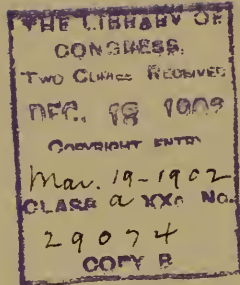 THE LIBRARY OF
CONGRESS,
TWO COPIES RECEIVED
DEC. 18 1902
COPYRIGHT ENTRY
Mar. 19-1902
CLASS a XXc No.
29074
COPY B